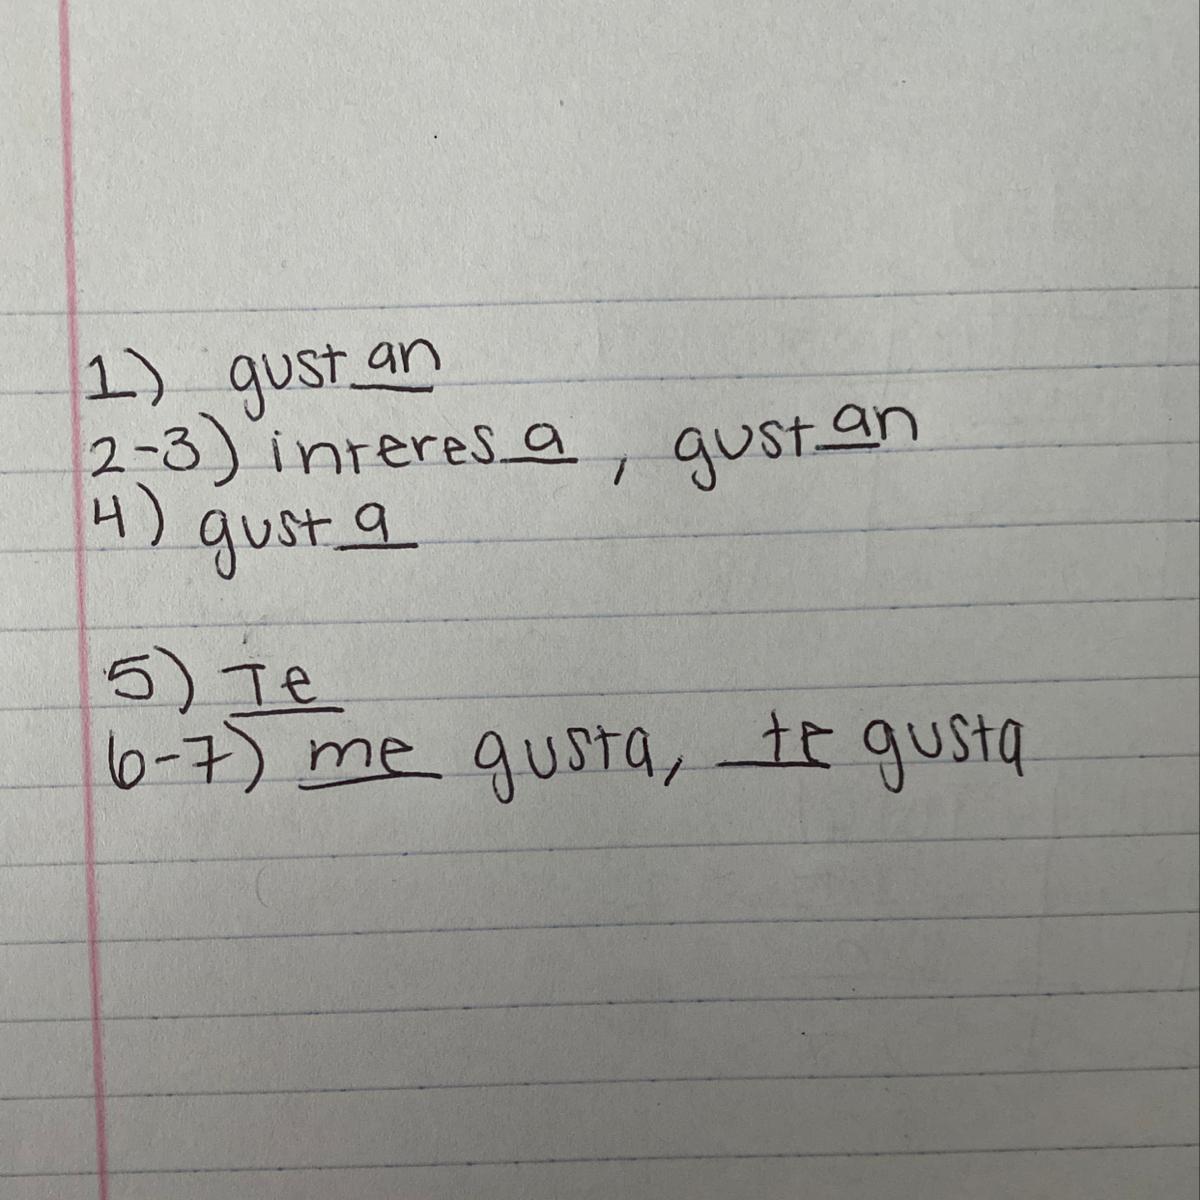 1) gustan
2-3) interesa, gustan
4) gusta
5) Te
6-7) me gusta, te gusta